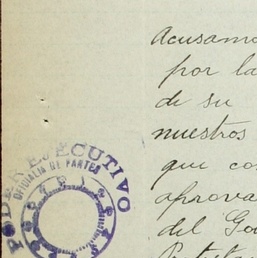 Acusamo
por la
de su
nuestros
que co
aprova
del Go
PODER EJECUTIVO
OFICIALIA DE PARTES